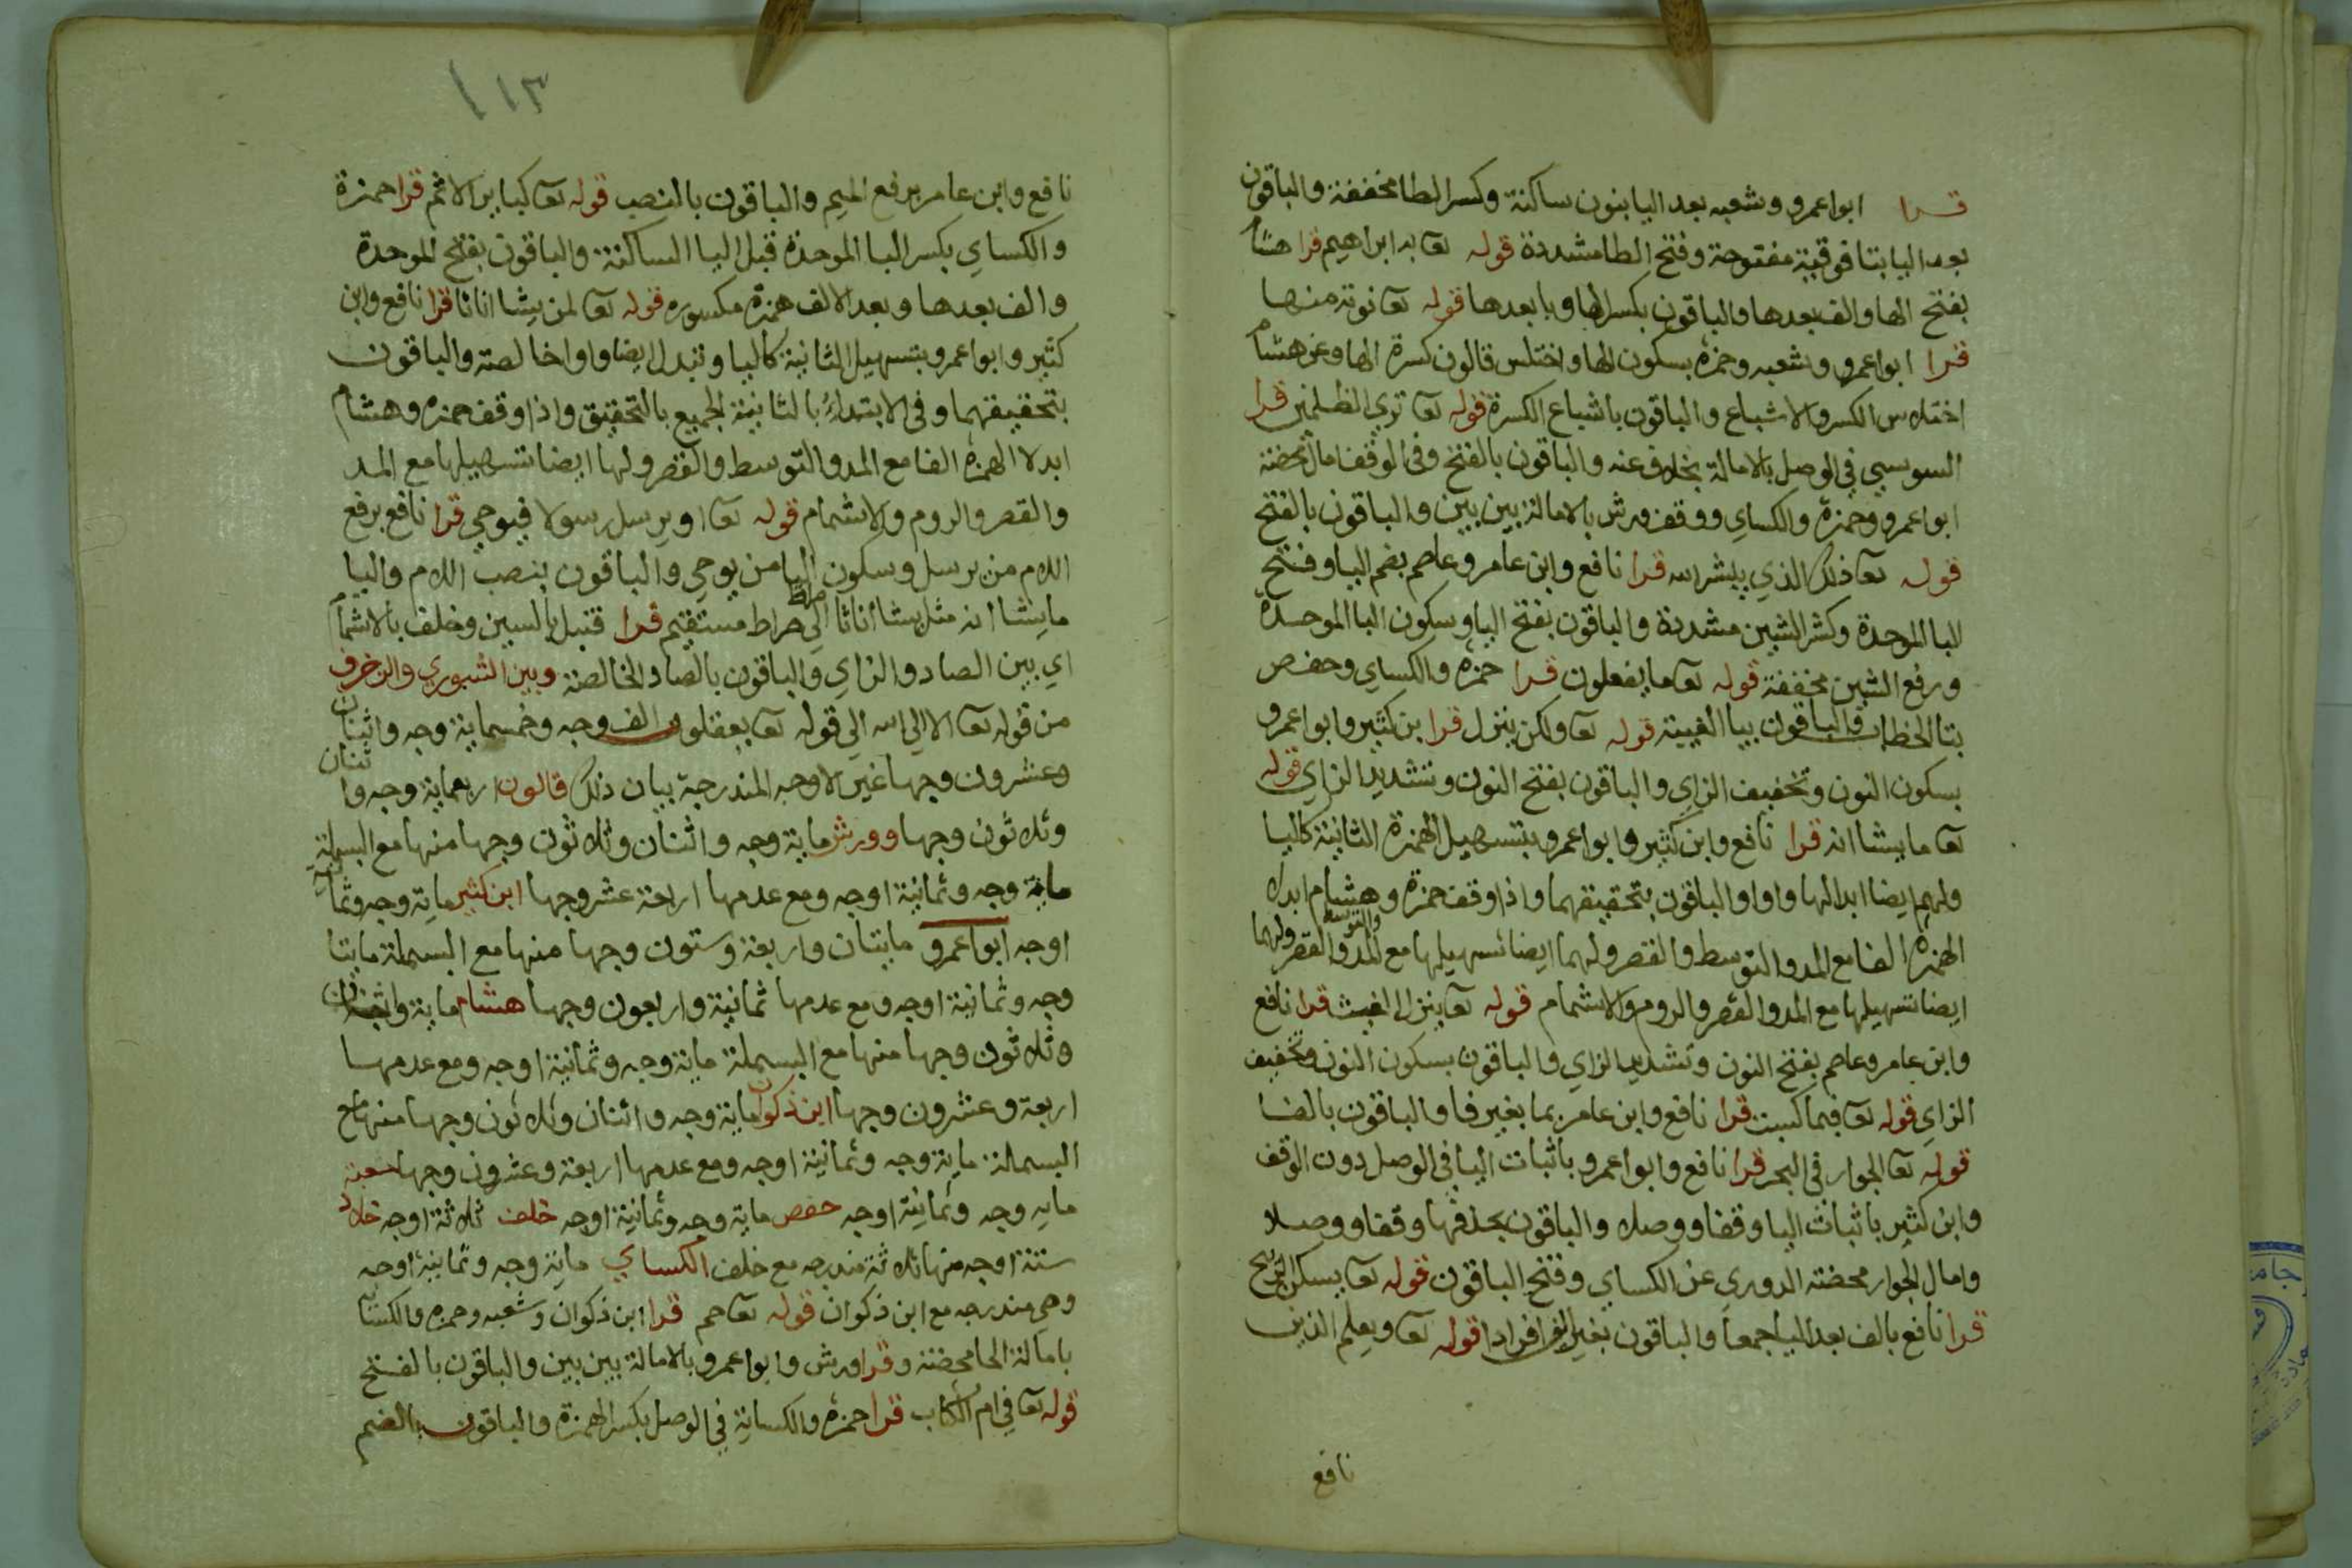 قرا ابوا عمرو وشعبه بعد اليا بنون ساكنة وكسر الطا مخففة والباقون
بعد اليا بتا فوقية مفتوحة وفتح الطا مشددة قوله تعا به ابراهيم قرا هشام
بفتح الها والف بعدها والباقون بكسر الها ويا بعدها قوله تعا نوته منها
قرا ابوا عمرو وشعبه وحمزه بسكون الها واختلس قالون كسرة الها وعن هشام
اختلاس الكسر والاشباع والباقون باشباع الكسرة قوله تعا تري الظلمين قرا
السوسي في الوصل بالامالة بخلاف عنه والباقون بالفتح وفي الوقف امال محضة
ابوا عمرو وحمزة والكساي ووقف ورش بالامالة بين بين والباقون بالفتح
قوله تعا ذلك الذي يبشر الله قرا نافع وابن عامر وعاصم بضم اليا وفتح
البا الموحدة وكسر الشين مشددة والباقون بفتح اليا وسكون البا الموحدة
ورفع الشين مخففة قوله تعا ما يفعلون قرا حمزه والكساي وحفص
بتا الخطاب والباقون بيا الغيبة قوله تعا ولكن ينزل قرا بن كثير وابوا عمرو
بسكون النون وتخفيف الزاي والباقون بفتح النون وتشديد الزاي قوله
تعا ما يشا انه قرا نافع وابن كثير وابوا عمرو بتسهيل الهمزة الثانية كاليا
ولهم ايضا ابدالها واوا والباقون بتحقيقهما واذا وقف حمزة وهشام ابدلا
الهمزه الفا مع المد والتوسط والقصر ولهما ايضا تسهيلها مع المد والتوسط والقصر ولهما
ايضا تسهيلها مع المد والقصر والروم والاشمام قوله تعا ينزل الغيث قرا نافع
وابن عامر وعاصم بفتح النون وتشديد الزاي والباقون بسكون النون وتخفيف
الزاي قوله تعا فبما كسبت قرا نافع وابن عامر بما بغير فا والباقون بالفا
قوله تعا الجوار في البحر قرا نافع وابوا عمرو باثبات اليا في الوصل دون الوقف
وابن كثير باثبات اليا وقفا ووصلا والباقون بحذفها وقفا ووصلا
وامال الجوار محضة الدوري عن الكساي وفتح الباقون قوله تعا يسكن الريح
قرا نافع بالف بعد اليا جمعا والباقون بغير الف افرادا قوله تعا ويعلم الذين
نافع
١١٣
نافع وابن عامر برفع الميم والباقون بالنصب قوله تعا كباير الاثم قرا حمزة
والكساي بكسر البا الموحدة قبل اليا الساكنة والباقون بفتح الموحدة
والف بعدها وبعد الالف همزة مكسوره قوله تعا لمن يشا اناثا قرا نافع وابن
كثير وابوا عمرو بتسهيل الثانية كاليا وتبدل ايضا واوا خالصة والباقون
بتحقيقهما وفي الابتداء بالثانية الجميع بالتحقيق واذا وقف حمزه وهشام
ابدلا الهمزه الفا مع المد والتوسط والقصر ولها ايضا تسهيلها مع المد
والقصر والروم والاشمام قوله تعا او يرسل رسولا فيوحي قرا نافع برفع
اللام من يرسل وسكون اليا من يوحي والباقون بنصب اللام واليا
ما يشا انه مثل يشا اناثا الي صراط صراط مستقيم قرا قنبل بالسين وخلف بالاشمام
اي بين الصاد والزاي والباقون بالصاد الخالصة وبين الشوري والزخرف
من قوله تعا الا الي الله الي قوله تعا يعقلون الف وجه وخمسماية وجه واثنان
وعشرون وجها غير الاوجه المندرجة بيان ذلك قالون اربعماية وجه واثنان
وثلاثون وجها وورش ماية وجه واثنان وثلاثون وجها منها مع البسملة
ماية وجه وثمانية اوجه ومع عدمها اربعة عشر وجها ابن كثير ماية وجه وثمانية
اوجه ابوا عمرو مايتان واربعة وستون وجها منها مع البسملة مايتا
وجه وثمانية اوجه ومع عدمها ثمانية واربعون وجها هشام ماية واثنان
وثلاثون وجها منها مع البسملة ماية وجه وثمانية اوجه ومع عدمها
اربعة وعشرون وجها ابن ذكوان ماية وجه واثنان وثلاثون وجها منها مع
البسملة ماية وجه وثمانية اوجه ومع عدمها اربعة وعشرون وجها شعبة
مايه وجه وثمانية اوجه حفص ماية وجه وثمانية اوجه خلف ثلاثة اوجه خلاد
ستة اوجه منها ثلاثة مندرجه مع خلف الكساي ماية وجه وثمانية اوجه
وهي مندرجه مع ابن ذكوان قوله تعا حم قرا ابن ذكوان وشعبه وحمزه والكساي
بامالة الحا محضة وقرا ورش وابوا عمرو بالامالة بين بين والباقون بالفتح
قوله تعا في ام الكتاب قرا حمزه والكساية في الوصل بكسر الهمزة والباقون بالضم